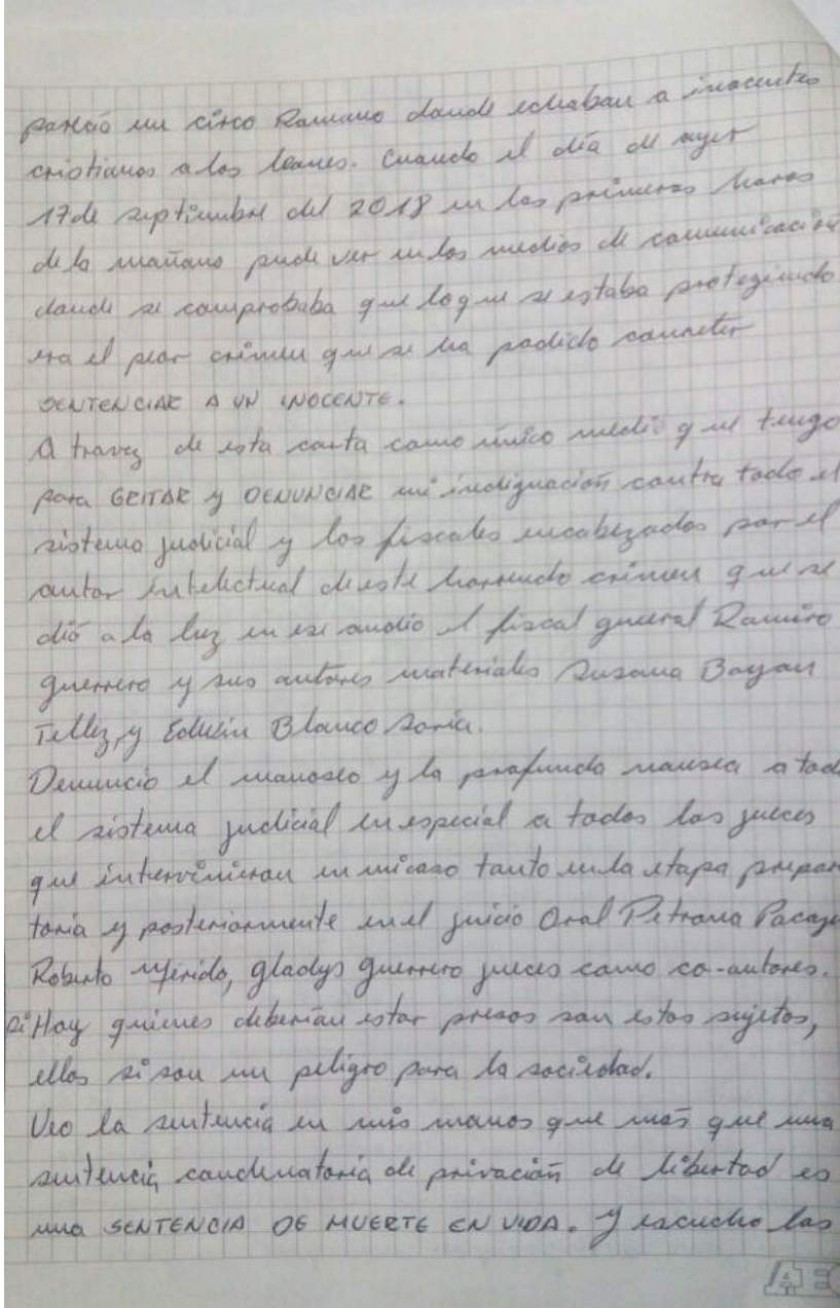 pareció un circo Romano donde echaban a inocentes
cristianos a los leones. Cuando el día de ayer
17 de septiembre del 2018 en las primeras horas
de la mañana pude ver en los medios de comunicación
donde se comprobaba que lo que se estaba protegiendo
era el peor crimen que se ha podido cometer
SENTENCIAR A UN INOCENTE.
A travez de esta carta como único medio que tengo
para GRITAR y DENUNCIAR mi indignación contra todo el
sistema judicial y los fiscales encabezados por el
autor intelectual de este horrendo crimen que se
dió a la luz en ese audio el fiscal general Ramiro
guerrero y sus autores materiales Susana Boyan
Tellez, y Edwin Blanco Soria.
Denuncio el manoseo y la profunda nausea a tod
el sistema judicial en especial a todos los jueces
que intervinieron en mi caso tanto en la etapa prepar
toria y posteriormente en el juicio Oral Petrona Pacaje
Roberto Mérida, gladys guerrero jueces como co-autores.
Si Hay quienes deberían estar presos son estos sujetos,
ellos si son un peligro para la sociedad.
Veo la sentencia en mis manos que más que una
sentencia condenatoria de privación de libertad es
una SENTENCIA DE MUERTE EN VIDA. Y escucho las